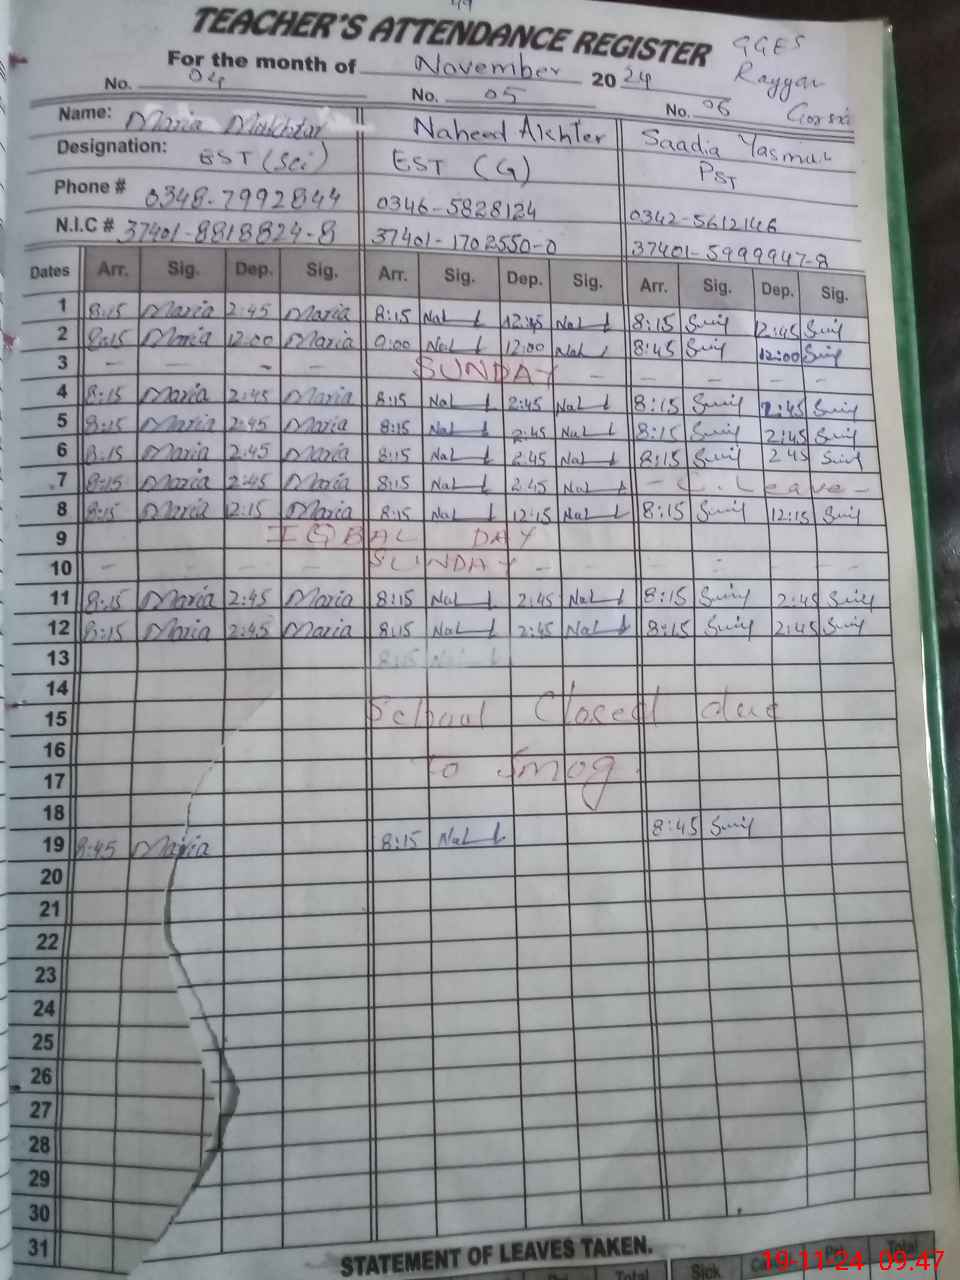 TEACHER'S ATTENDANCE REGISTER
GGES
For the month of November 2024
No. 04 No. 05 No. 06
Name: Maria Mukhtar Naheed Akhter Saadia Yasmin
Designation: EST (Sci) EST (G) PST
Phone # 0348-7992844 0346-5828124 0342-5612146
N.I.C # 37401-8818824-8 37401-1702550-0 37401-5999947-8
Dates Arr. Sig. Dep. Sig. Arr. Sig. Dep. Sig. Arr. Sig. Dep. Sig.
1 8:15 Maria 2:45 Maria 8:15 12:45 8:15 2:45
2 8:15 Maria 12:00 Maria 9:00 12:00 8:45 12:00
3 - - - - SUNDAY - - - - - -
4 8:15 Maria 2:45 Maria 8:15 2:45 8:15 2:45
5 8:15 Maria 2:45 Maria 8:15 2:45 8:15 2:45
6 8:15 Maria 2:45 Maria 8:15 2:45 8:15 2:45
7 8:15 Maria 2:45 Maria 8:15 2:45 - C. Leave -
8 8:15 Maria 2:15 Maria 8:15 12:15 8:15 12:15
9 IQBAL DAY
10 - - - - SUNDAY - - - - - -
11 8:15 Maria 2:45 Maria 8:15 2:45 8:15 2:45
12 8:15 Maria 2:45 Maria 8:15 2:45 8:15 2:45
13 8:15
14
15 School Closed due
16
17 to Smog
18
19 8:45 Maria 8:15 8:45
20
21
22
23
24
25
26
27
28
29
30
31
STATEMENT OF LEAVES TAKEN.
Total Sick Total
19-11-24 09:47